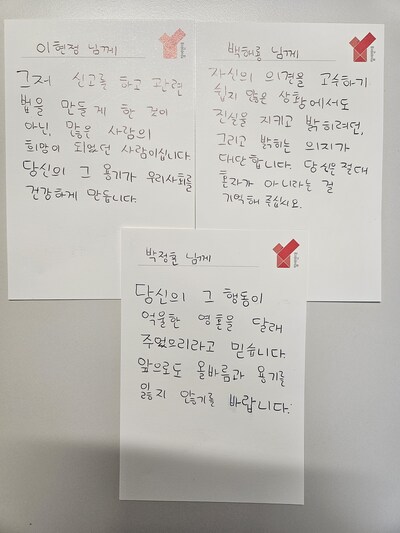 이현정 님께
그저 신고를 하고 관련
법을 만들게 한 것이
아닌, 많은 사람의
희망이 되었던 사람이십니다.
당신의 그 용기가 우리사회를
건강하게 만듭니다.
백해룡 님께
자신의 의견을 고수하기
쉽지 않은 상황에서도
진실을 지키고 밝히려던,
그리고 밝히는 의지가
대단합니다. 당신은 절대
혼자가 아니라는 걸
기억해 주십시오.
박정훈 님께
당신의 그 행동이
억울한 영혼을 달래
주었으리라고 믿습니다.
앞으로도 올바름과 용기를
잃지 않기를 바랍니다.